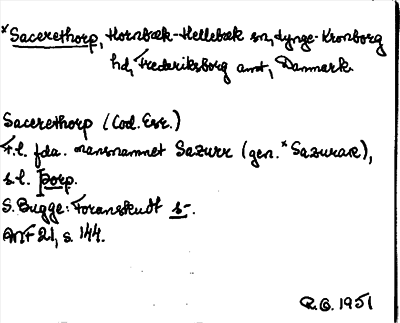 *Sacerethorp, Hornbæk-Hellebæk sn, Lynge-Kronborg
hd, Frederiksborg amt, Danmark
Sacerethorp (Cod. Esr.)
F.l. fda. mansnamnet Sazurr (gen. *Sazurar),
s.l. þorp.
S. Bugge: Foranskudt s-.
ANF 21, s. 144.
R.G. 1951